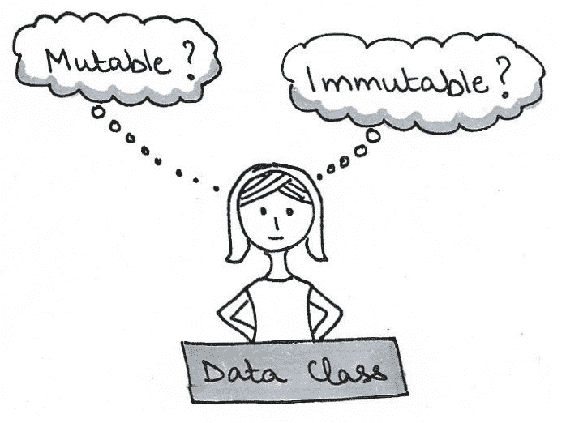 Mutable?
Immutable?
Data Class